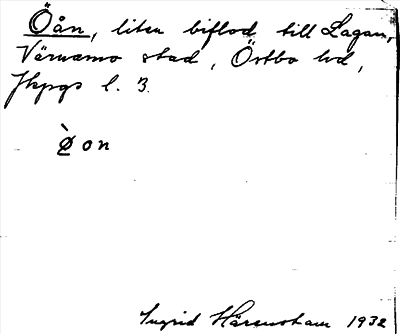 Öån, liten biflod till Lagan,
Värnamo stad, Östbo hd,
Jkpgs l. 3.
Ø̀on
Ingrid 1932